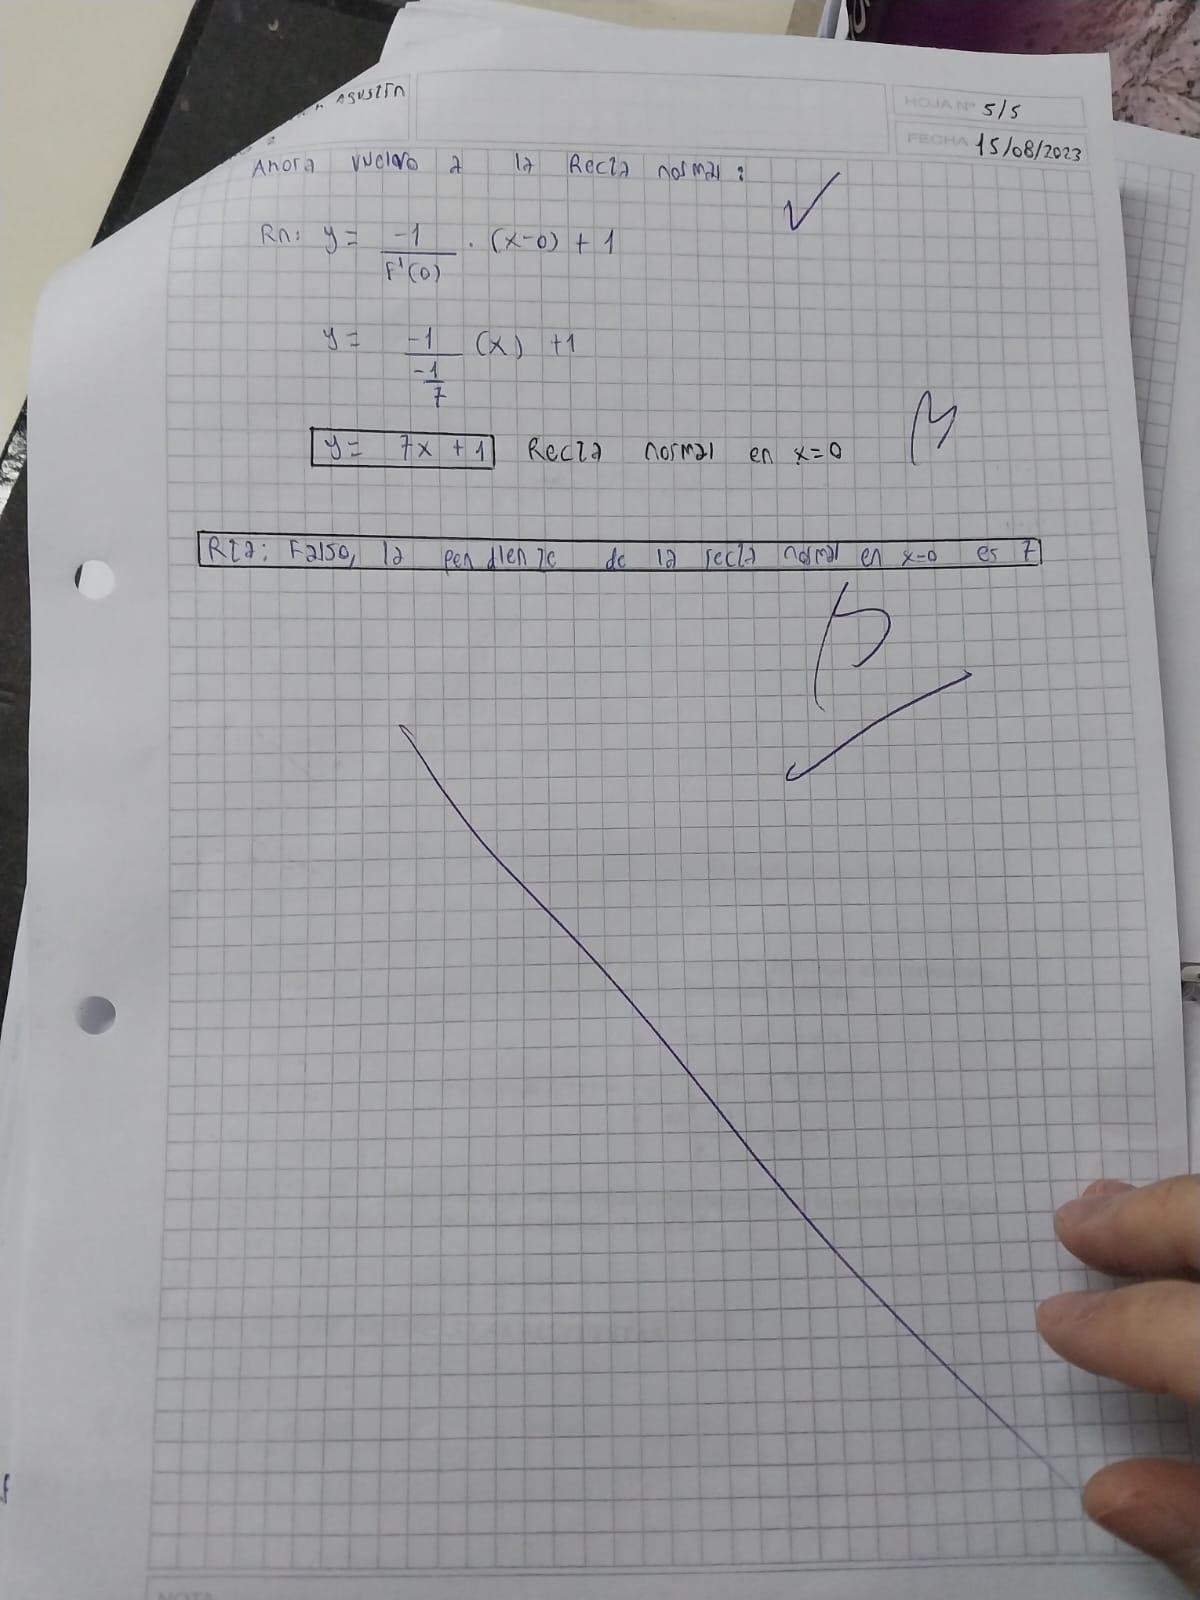 AGUSTÍN
HOJA Nº 5/5
FECHA 15/08/2023
Ahora vuelvo a la Recta normal:
Rn: y = -1/F'(0) . (x-0) + 1
y = -1/(-1/7) (x) +1
y = 7x + 1 Recta normal en x=0
Rta: Falso, la pendiente de la recta normal en x=0 es 7
B
NOTA